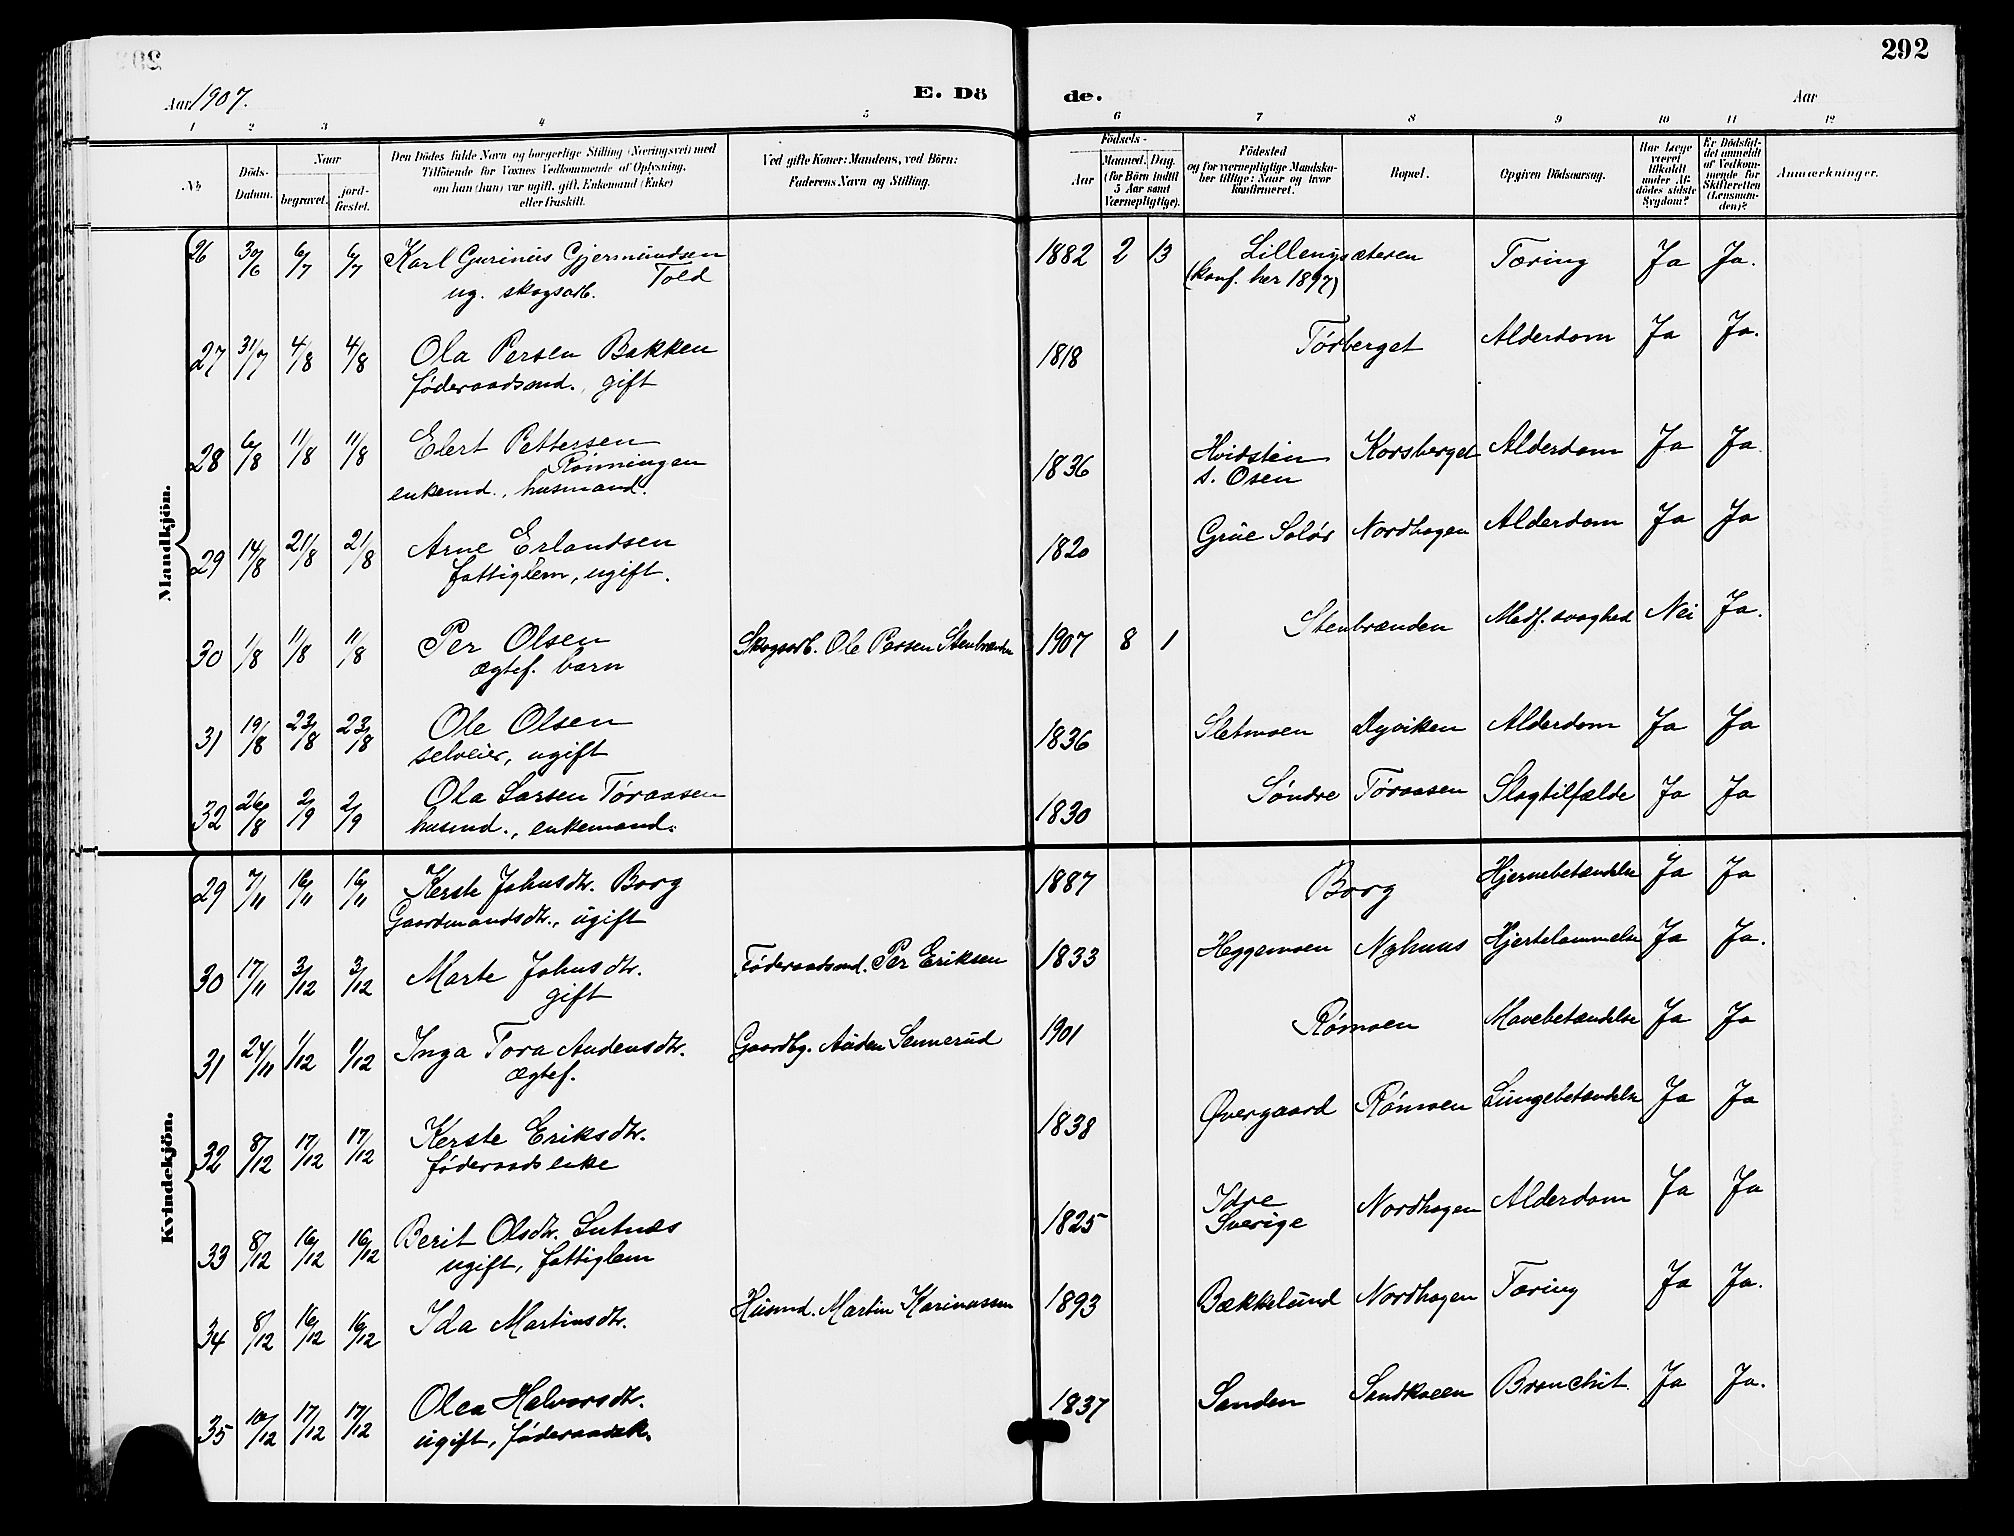 292
Aar 1907.
E. Dö de.
Aar
1 2 3 4 5 6 7 8 9 10 11 12
No
Döds-Datum.
Naar
begravet.
jord-fæstet.
Den Dödes fulde Navn og borgerlige Stilling (Næringsvei) med
Tilföiende for Voxnes Vedkommende af Oplysning,
om han (hun) var ugift, gift, Enkemand (Enke)
eller fraskilt.
Ved gifte Koner: Mandens, ved Börn:
Faderens Navn og Stilling.
Födsels-
Aar
Maaned. Dag.
(for Börn indtil
5 Aar samt
Værnepligtige).
Födested
og for værnepligtige Mandska-
ber tillige: Naar og hvor
konfirmeret.
Bopæl.
Opgiven Dödsaarsag.
Har Læge
været
tilkaldt
under Af-
dödes sidste
Sygdom?
Er Dödsfal-
det anmeldt
af Vedkom-
mende for
Skifteretten
(Lensman-
den)?
Anmærkninger.
Mandkjön.
26 30/6 6/7 6/7 Karl Gurinius Gjermundsen 1882 2 13 Lillenysæteren Tæring Ja Ja.
Told
ug. skogsarb. (konf. her 1897)
27 31/7 4/8 4/8 Ola Persen Bakken 1818 Törberget Alderdom Ja Ja.
föderaadsmd., gift
28 6/8 11/8 11/8 Elert Pettersen 1836 Hvidstein Korsberget Alderdom Ja Ja.
Rönningen s. Osen
enkemd., husmand.
29 14/8 21/8 21/8 Arne Erlandsen 1820 Grue Solör Nordhagen Alderdom Ja Ja
fattiglem, ugift.
30 1/8 11/8 11/8 Per Olsen Skogsarb. Ole Persen Stenbrænden 1907 8 1 Stenbrænden Medf. svaghed Nei Ja.
ægtef. barn
31 19/8 23/8 23/8 Ole Olsen 1836 Sletmoen Dyviken Alderdom Ja Ja
selveier, ugift
32 26/8 2/9 2/9 Ola Larsen Töraasen 1830 Söndre Töraasen Slagtilfælde Ja Ja
husmd., enkemand.
Kvindekjön.
29 7/11 16/11 16/11 Kerste Johnsdtr. Borg 1887 Borg Hjernebetændelse Ja Ja
Gaardmandsdtr., ugift
30 17/11 3/12 3/12 Marte Johnsdtr. Föderaadsmd. Per Eriksen 1833 Heggemoen Nyhuus Hjertelammelse Ja Ja.
gift
31 24/11 1/12 1/12 Inga Tora Audensdtr. Gaardbg. Auden Sennerud 1901 Römoen Mavebetændelse Ja Ja
Ægtef.
32 8/12 17/12 17/12 Kerste Eriksdtr. 1838 Øvergaard Römoen Lungebetændelse Ja Ja
föderaadsenke
33 8/12 16/12 16/12 Berit Olsdtr. Lutnæs 1825 Idre Nordhagen Alderdom Ja Ja
ugift, fattiglem Sverige
34 8/12 16/12 16/12 Ida Martinsdtr. Husmd. Martin Karinussen 1893 Bækkelund Nordhagen Tæring Ja Ja.
35 10/12 17/12 17/12 Olea Halvorsdtr. 1837 Sanden Bronchit. Ja Ja.
ugift, föderaadsk.